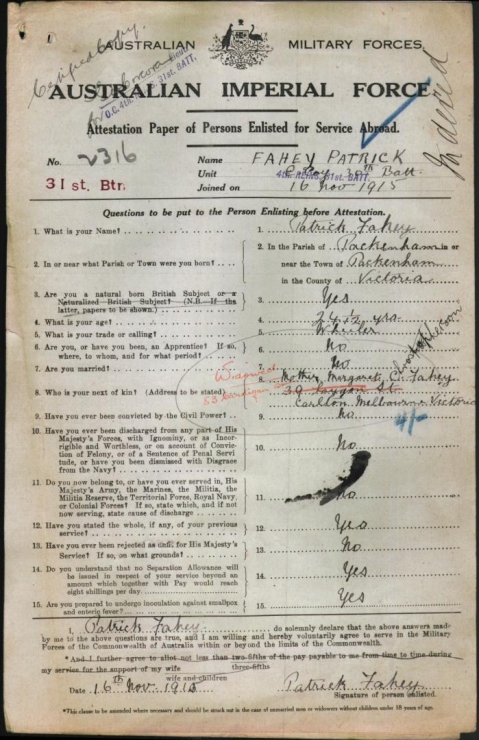 Certified Copy.
AUSTRALIAN MILITARY FORCES.
O.C. 4th 31st. BATT.
Indexed
AUSTRALIAN IMPERIAL FORCE
Attestation Paper of Persons Enlisted for Service Abroad.
No. 2316
31st. Btn.
Name FAHEY PATRICK
Unit 30th Batt. 31st. BATT.
Joined on 16 Nov 1915
Questions to be put to the Person Enlisting before Attestation.
1. What is your Name? 1. Patrick Fahey
2. In or near what Parish or Town were you born? 2. In the Parish of Packenham in or
near the Town of Packenham
in the County of Victoria
3. Are you a natural born British Subject or a
Naturalized British Subject? (N.B.—If the
latter, papers to be shown.) 3. Yes
4. What is your age? 4. 24 ½ yrs
5. What is your trade or calling? 5.
6. Are you, or have you been, an Apprentice? If so,
where, to whom, and for what period? 6. No
7. Are you married? 7. No
8. Who is your next of kin? (Address to be stated) 8. Mother, Margaret C. Fahey
Widowed
53 39 St
Carlton Melbourne Victoria
9. Have you ever been convicted by the Civil Power? 9. No
4/-
10. Have you ever been discharged from any part of His
Majesty's Forces, with Ignominy, or as Incor-
rigible and Worthless, or on account of Conviction
of Felony, or of a Sentence of Penal Servi-
tude, or have you been dismissed with Disgrace
from the Navy? 10. No
11. Do you now belong to, or have you ever served in, His
Majesty's Army, the Marines, the Militia, the
Militia Reserve, the Territorial Force, Royal Navy,
or Colonial Forces? If so, state which, and if not
now serving, state cause of discharge 11. No
12. Have you stated the whole, if any, of your previous
service? 12. Yes
13. Have you ever been rejected as unfit for His Majesty's
Service? If so, on what grounds? 13. No
14. Do you understand that no Separation Allowance
will be issued in respect of your service beyond an
amount which together with Pay would reach
eight shillings per day. 14. Yes
15. Are you prepared to undergo inoculation against smallpox
and enteric fever? 15. Yes
I, Patrick Fahey do solemnly declare that the above answers made
by me to the above questions are true, and I am willing and hereby voluntarily agree to serve in the Military
Forces of the Commonwealth of Australia within or beyond the limits of the Commonwealth.
*And I further agree to allot not less than two-fifths of the pay payable to me from time to time during
three-fifths
my service for the support of my wife
wife and children
Date 16th Nov 1915 Patrick Fahey
Signature of person enlisted.
*This clause to be amended where necessary and should be struck out in the case of unmarried men or widowers without children under 18 years of age.